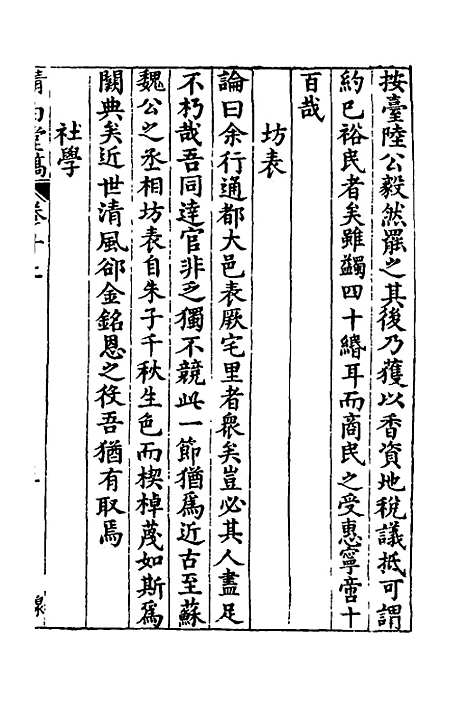 按臺陸公毅然罷之其後乃獲以香資地稅議抵可謂
約已裕民者矣雖蠲四十緡耳而商民之受惠寧啻十
百哉
坊表
論曰余行通都大邑表厥宅里者衆矣豈必其人盡足
不朽哉吾同達官非乏獨不競此一節猶爲近古至蘇
魏公之丞相坊表自朱子千秋生色而楔棹蔑如斯爲
闕典矣近世清風郤金銘恩之役吾猶有取焉
社學